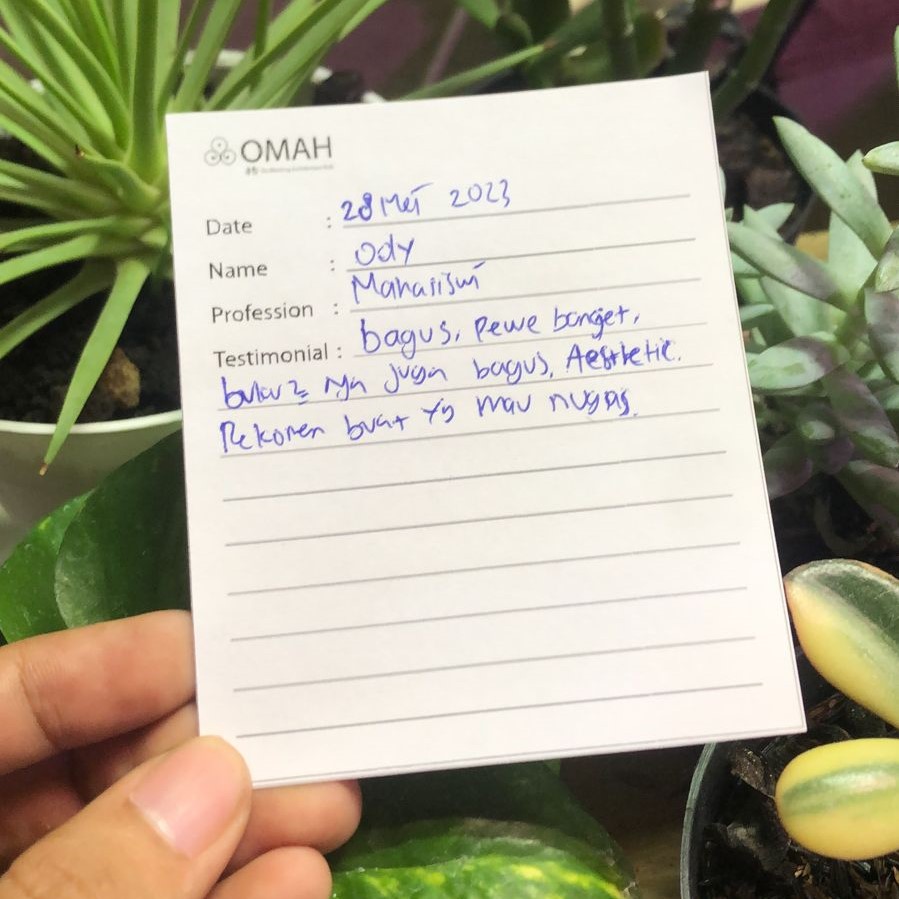 OMAH
Date : 28 Mei 2023
Name : Ody
Profession : Mahasiswi
Testimonial : bagus, pewe banget,
buku2 nya juga bagus, Aesthetic.
Rekomen buat yg mau nugas.